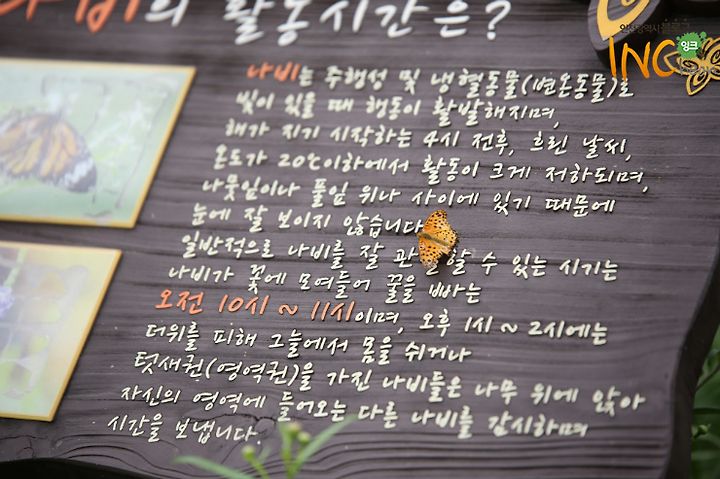 나비의 활동시간은?
나비는 주행성 및 냉혈동물(변온동물)로
빛이 있을 때 행동이 활발해지며,
해가 지기 시작하는 4시 전후, 흐린 날씨,
온도가 20℃이하에서 활동이 크게 저하되며,
나뭇잎이나 풀잎 위나 사이에 있기 때문에
눈에 잘 보이지 않습니다
일반적으로 나비를 잘 관 할 수 있는 시기는
나비가 꽃에 모여들어 꿀을 빠는
오전 10시 ~ 11시이며, 오후 1시 ~ 2시에는
더위를 피해 그늘에서 몸을 쉬거나
텃새권(영역권)을 가진 나비들은 나무 위에 앉아
자신의 영역에 들어오는 다른 나비를 감시하며
시간을 보냅니다.
ING
잉크